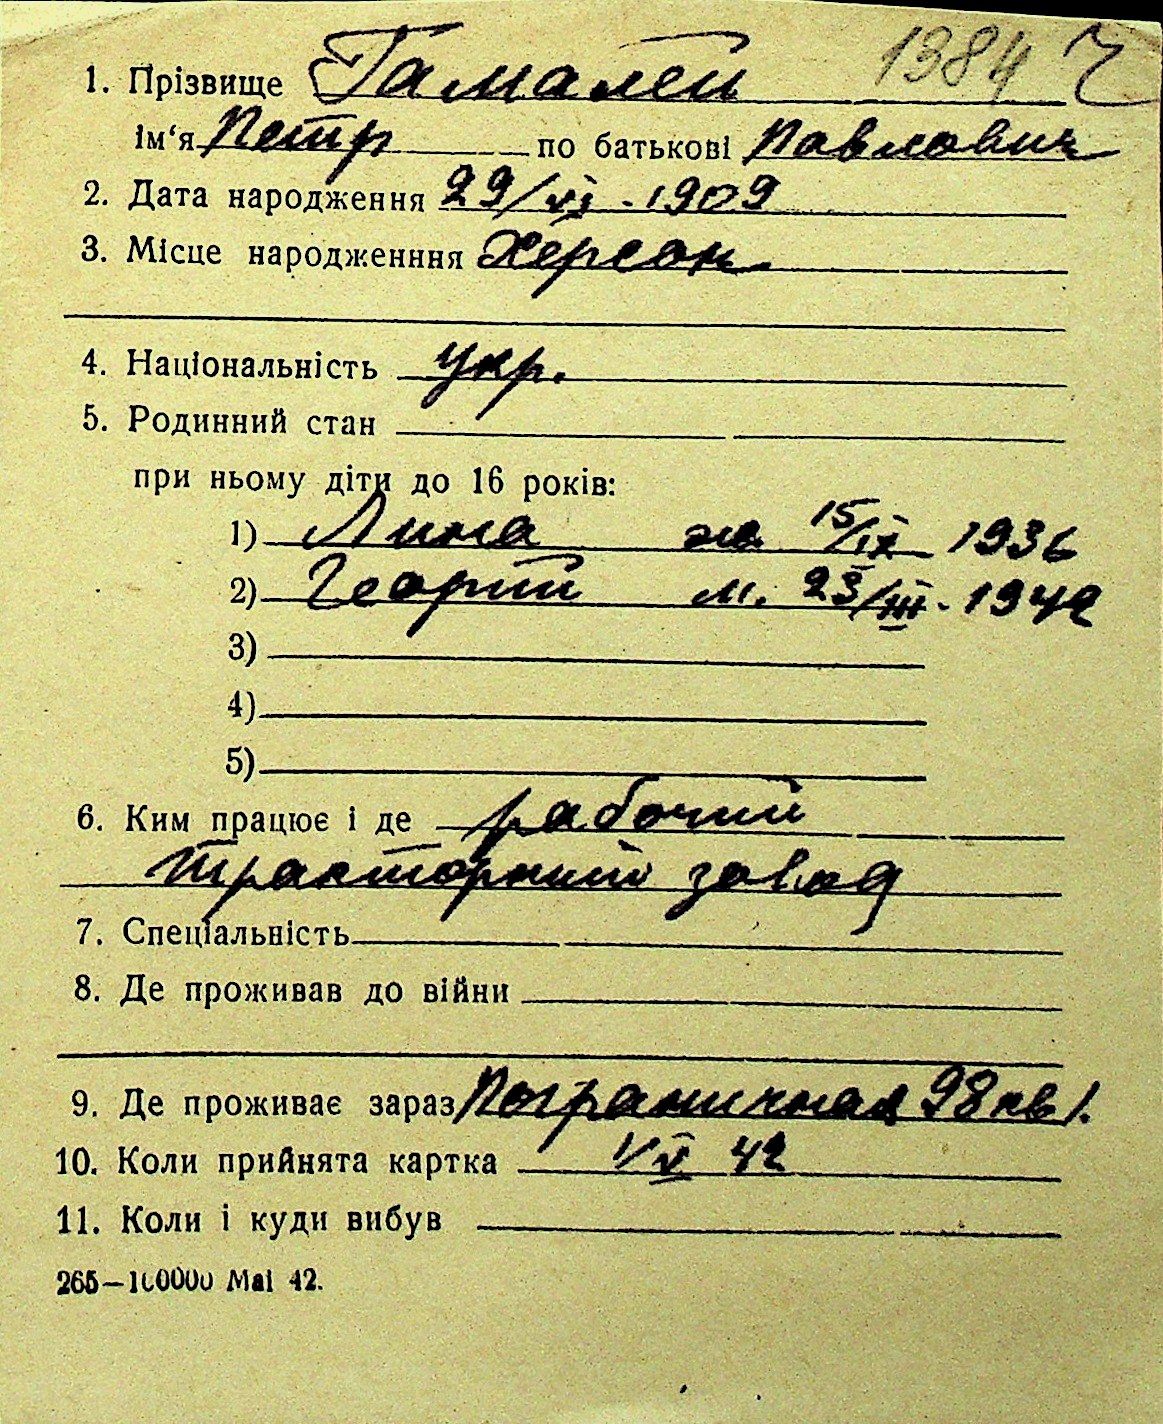 1384 Ч
1. Прізвище Гамалей
ім‘я Петр по батькові Павлович
2. Дата народження 29/VI - 1909
3. Місце народженння Херсон.
4. Національність укр.
5. Родинний стан
при ньому діти до 16 років:
1) Лина ж 15/IX 1936
2) Георгий м. 23/III - 1942
3)
4)
5)
6. Ким працює і де рабочий
тракторний завод
7. Спеціальність
8. Де проживав до війни
9. Де проживає зараз Пограничная 98 кв 1.
10. Коли прийнята картка 1/V 42
11. Коли і куди вибув
265—100000 Mai 42.